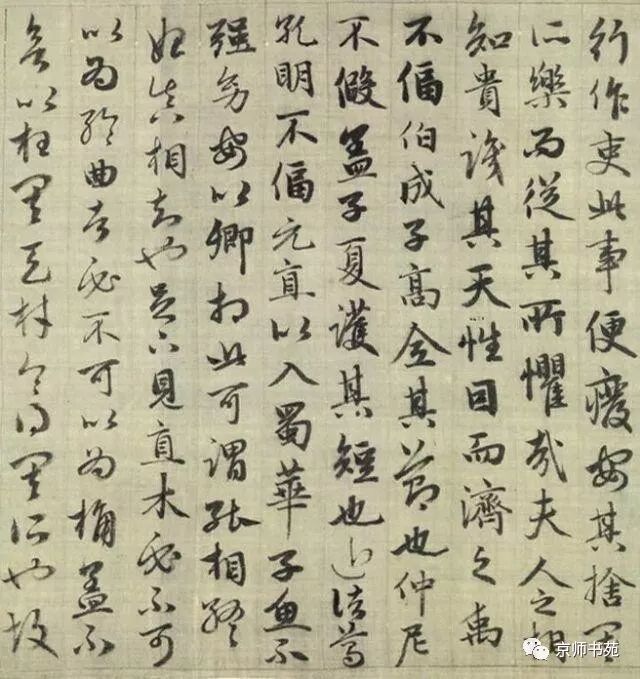 行作吏此事便癈安其捨其
所樂而從其所懼哉夫人之相
知貴識其天性因而濟之禹
不偪伯成子高全其節也仲尼
不假盖子夏護其短也近諸葛
孔明不偪元直以入蜀華子魚不
強幼安以卿相此可謂能相終
始真相知也足下見直木必不可
以為輪曲者必不可以為桷盖不
欲以枉其天才令得其所也故
京师书苑